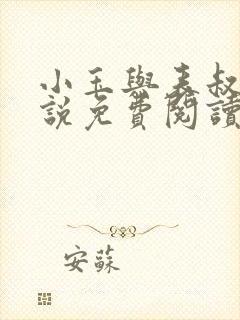 小玉與表叔
說免費閱讀
安蘇